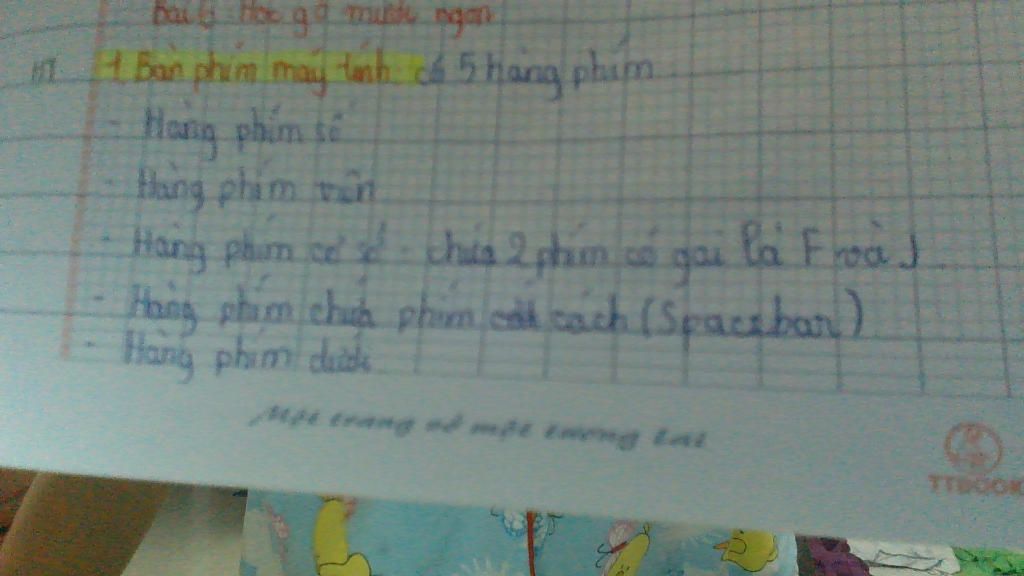 Bài 6: Học gõ mười ngón
1. Bàn phím máy tính có 5 hàng phím
- Hàng phím số
- Hàng phím trên
- Hàng phím cơ sở - chứa 2 phím có gai là F và J
- Hàng phím chứa phím cách (Spacebar)
- Hàng phím dưới
Một trang vở một tương lai
TTBOOK